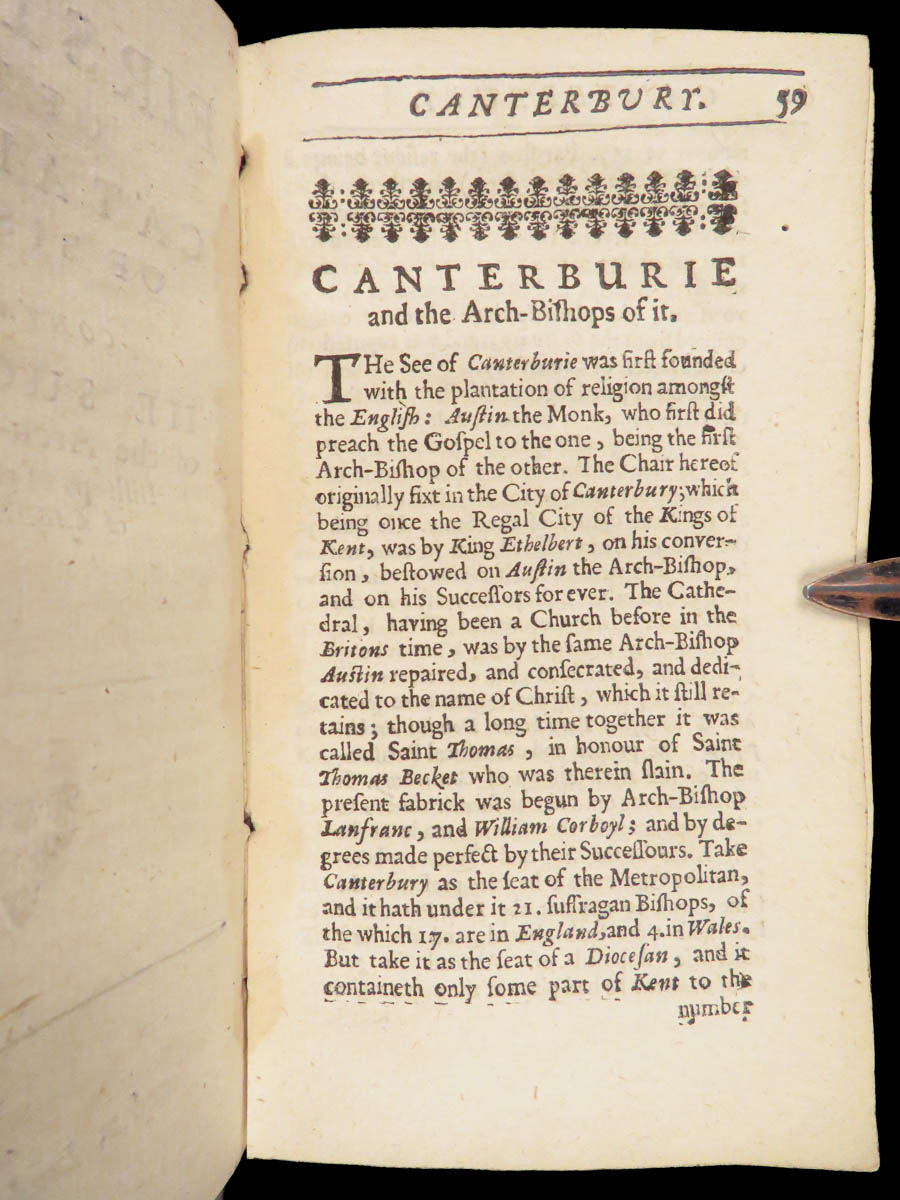 CANTERBURY. 59
CANTERBURIE
and the Arch-Biſhops of it.
THe See of Canterburie was firſt founded
with the plantation of religion amongſt
the Engliſh: Auſtin the Monk, who firſt did
preach the Goſpel to the one, being the firſt
Arch-Biſhop of the other. The Chair hereof
originally fixt in the City of Canterbury; which
being once the Regal City of the Kings of
Kent, was by King Ethelbert, on his conver-
ſion, beſtowed on Auſtin the Arch-Biſhop,
and on his Succeſſors for ever. The Cathe-
dral, having been a Church before in the
Britons time, was by the ſame Arch-Biſhop
Auſtin repaired, and conſecrated, and dedi-
cated to the name of Chriſt, which it ſtill re-
tains; though a long time together it was
called Saint Thomas, in honour of Saint
Thomas Becket who was therein ſlain. The
preſent fabrick was begun by Arch-Biſhop
Lanfranc, and William Corboyl; and by de-
grees made perfect by their Succeſſours. Take
Canterbury as the ſeat of the Metropolitan,
and it hath under it 21. ſuffragan Biſhops, of
the which 17. are in England, and 4. in Wales.
But take it as the ſeat of a Dioceſan, and it
containeth only ſome part of Kent to the
number